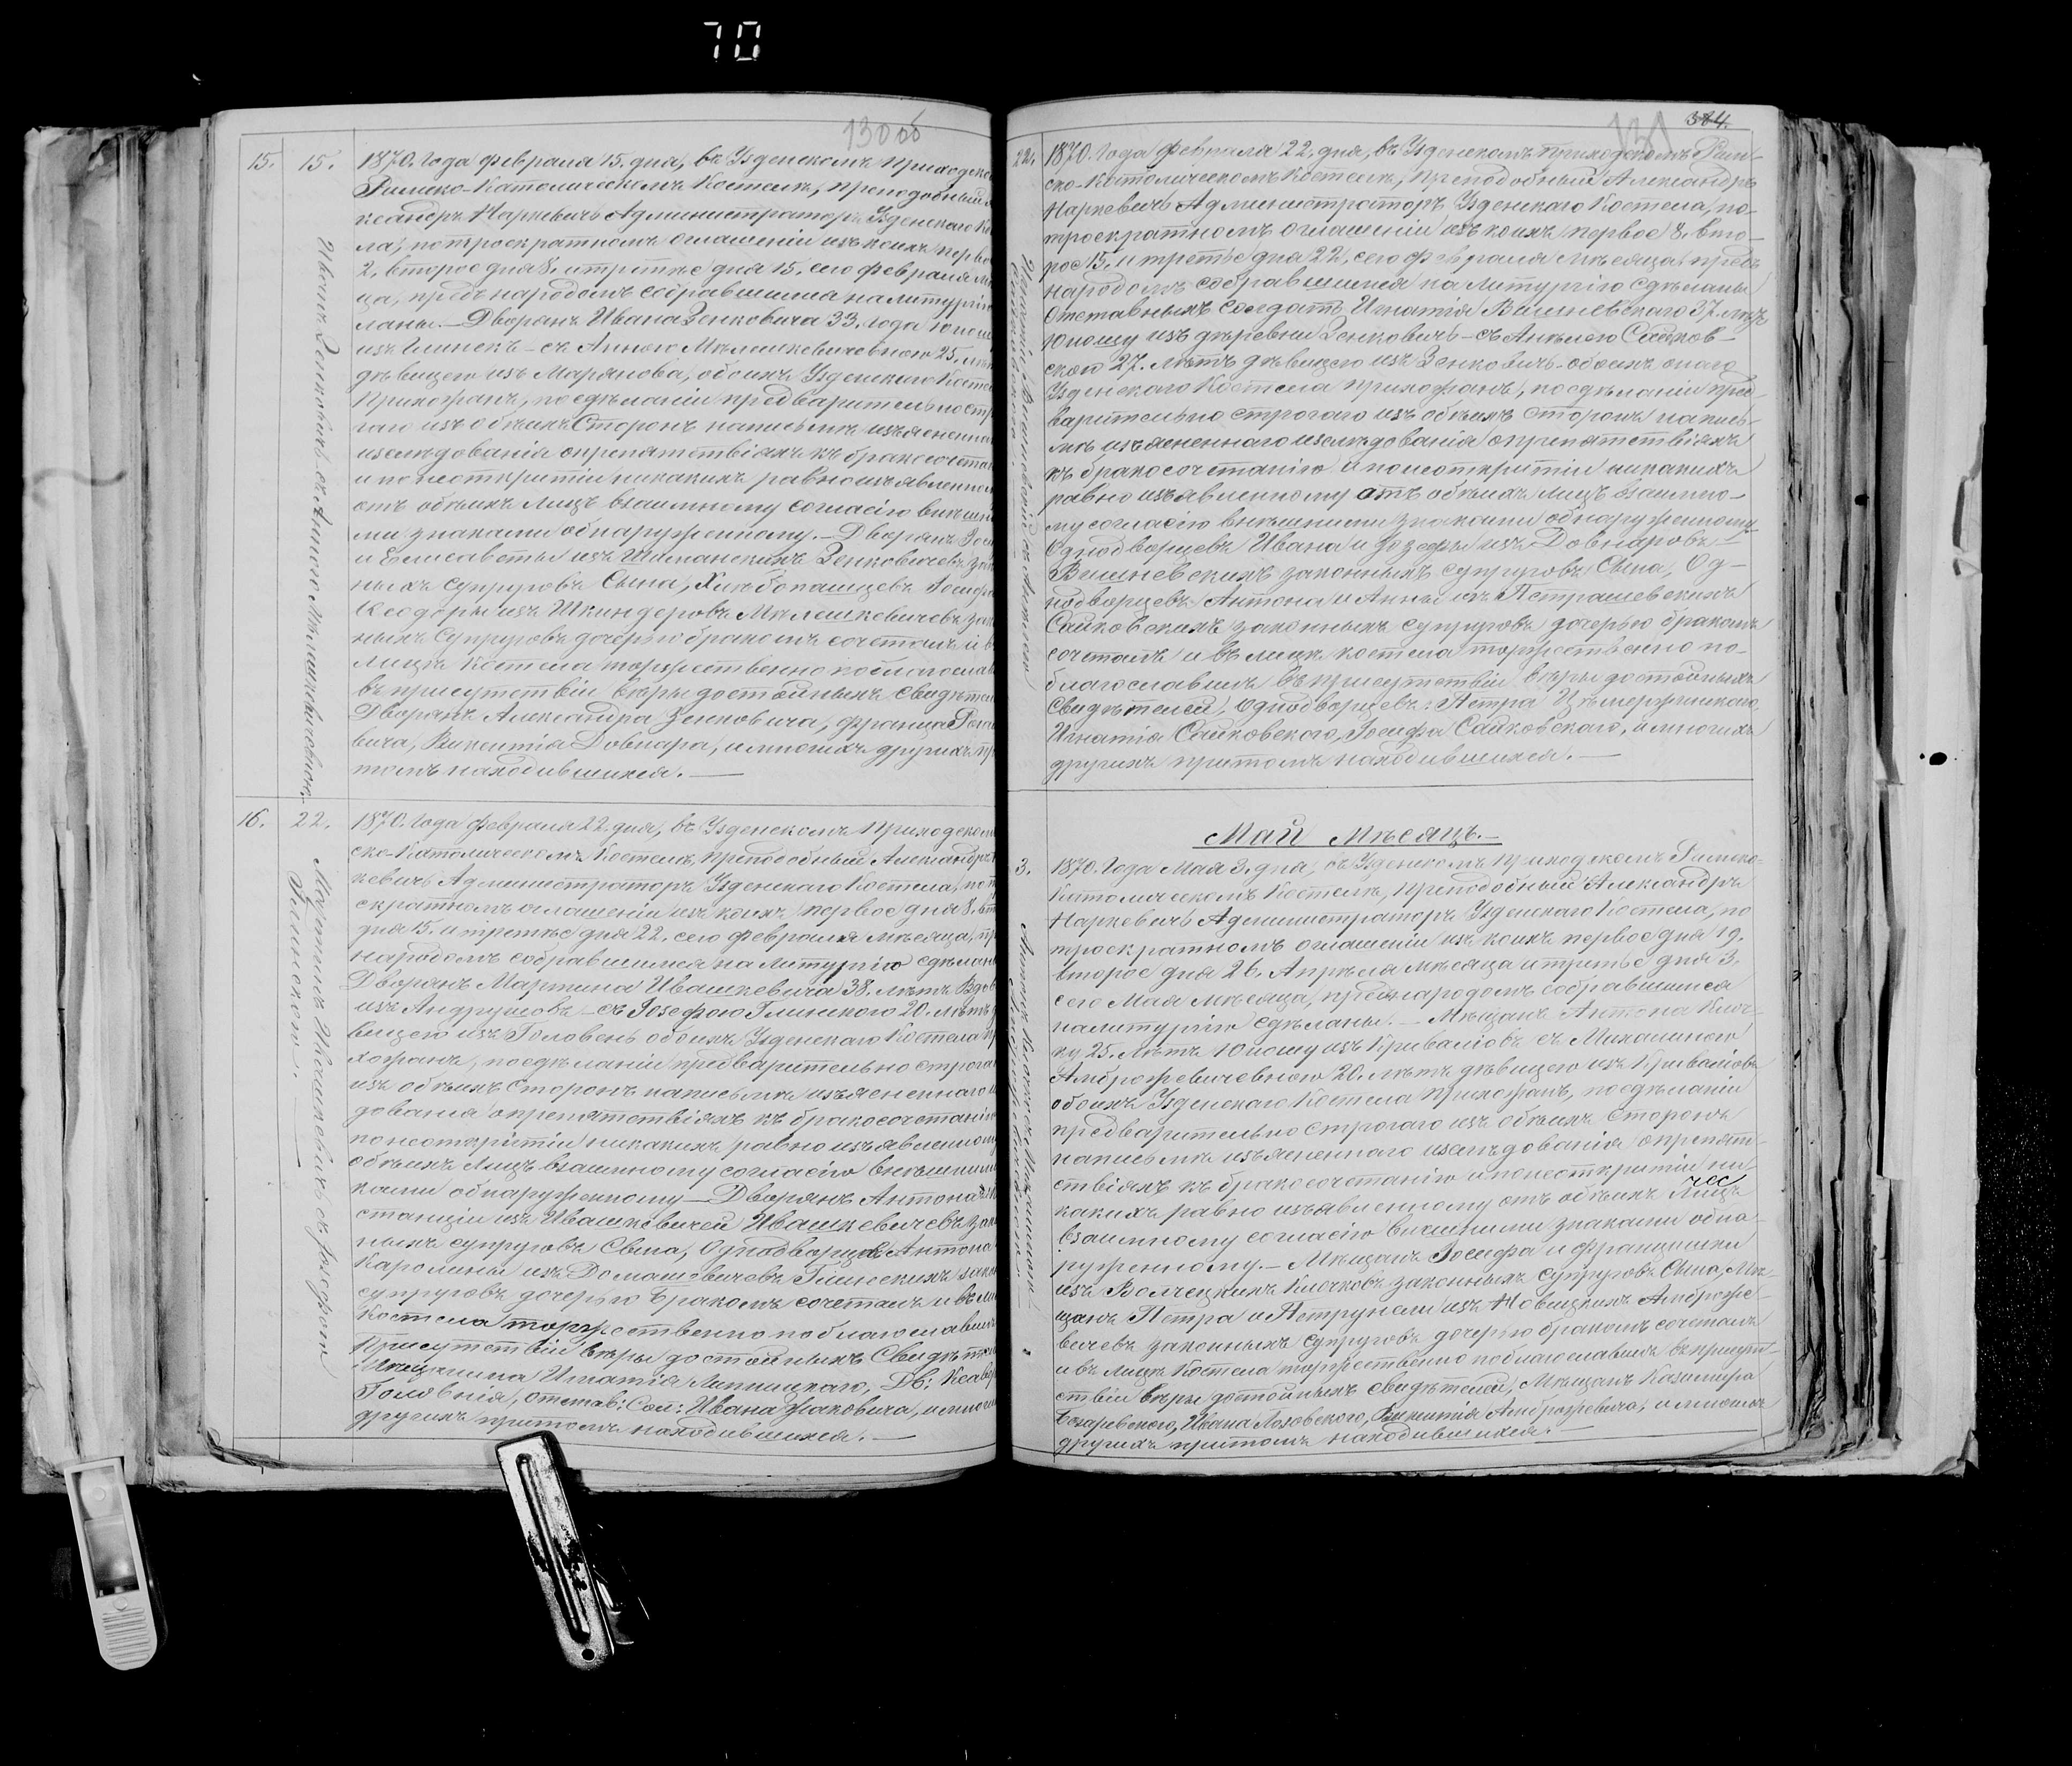 70
130 об
15. 15. 1870. Года Февраля 15. дня, въ Узденскомъ Приходско
Римско-Католическомъ Костелѣ, преподобный
ксандръ Наркевичъ Администраторъ Узденскаго Ко
ла, по троекратномъ оглашеніи изъ коихъ перво
2. второе дня 8. и третье дня 15. сего Февраля мѣ
ца, предъ народомъ собравшимся на литургію
ланы. — Дворянъ Ивана Зенковича 33. Года юнош
изъ – съ Анною Мѣлешкевичевною 25. лѣ
дѣвицею изъ Марянова, обоихъ Узденскаго Косте
Прихожанъ, по сдѣланіи предварительно стр
гаго изъ обѣихъ Сторонъ на письмѣ изъясненна
изслѣдованія о препятствіяхъ къ бракосочета
и по неоткрытіи никакихъ равно изъявленном
отъ обѣихъ Лицъ взаимному согласію внѣшни
ми знаками обнаруженному. — Дворянъ Іоси
и Елисаветы изъ Шиманскихъ Зенковичевъ зак
ныхъ супруговъ Сына, Хлѣбопашцевъ Іосифа
Ксадоры изъ Шкиндеровъ Мѣлешкевичевъ зак
ныхъ Супруговъ дочерью бракомъ сочеталъ и в
лицѣ Костела торжественно поблагослав
въ присутствіи вѣры достойныхъ свидѣте
Дворянъ Александра Зенковича, Франца
вича, Викентія Довнара, и многихъ другихъ пр
томъ находившихся. —
Иванъ Зенковичъ съ Анною Мѣлешкевичевною. —
16. 22. 1870. Года Февраля 22. дня, въ Узденскомъ Приходском
ско-Католическомъ Костелѣ, преподобный Александръ
кевичъ Администраторъ Узденскаго Костела, по т
екратномъ оглашеніи изъ коихъ первое дня 8. вт
дня 15. и третье дня 22. сего Февраля мѣсяца, пр
народомъ собравшимся на литургію сдѣлан
Дворянъ Мартина Ивашкевича 38. лѣтъ Вдов
изъ Андрушовъ – съ Іозефою Глинскою 20. лѣтъ
вицею изъ Головень обоихъ Узденскаго Костела
хожанъ, по сдѣланіи предварительно строга
изъ обѣихъ Сторонъ на письмѣ изъясненнаго
дованія о препятствіяхъ къ бракосочетанію
по неоткрытіи никакихъ равно изъявленном
обѣихъ Лицъ взаимному согласію внѣшними
ками обнаруженному — Дворянъ Антона
станціи изъ Ивашкевичей Ивашкевичевъ зак
ныхъ супруговъ Сына, Однодворцевъ Антона
Каролины изъ Домашевичевъ Глинскихъ зако
супруговъ дочерью бракомъ сочеталъ и въ ли
Костела торжественно поблагославилъ
присутствіи вѣры достойныхъ Свидѣте
Мѣщанина Игнатія Липницкаго, Дв: Ксавер
Головнія, отстав: Сол: Ивана Жаковича, и мног
другихъ притомъ находившихся. —
Мартинъ Ивашкевичъ съ Іозефою
Глинскою. —
131 384.
22. 1870. Года Февраля 22. дня, въ Узденскомъ Приходскомъ Рим-
ско-Католическомъ Костелѣ, Преподобный Александръ
Наркевичъ Администраторъ Узденскаго Костела, по-
троекратномъ оглашеніи изъ коихъ первое 8. вто-
рое 15. и третье дня 22. сего Февраля мѣсяца предъ
народомъ собравшимся на Литургію сдѣланы
Отставныхъ солдатъ Игнатія Вишневскаго 37. лѣтъ
Юношу изъ деревни Зенковичъ – съ Анѣлею Сайков-
скою 27. лѣтъ дѣвицею изъ Зенковичъ – обоихъ онаго
Узденскаго Костела прихожанъ, по сдѣланіи пред-
варительно строгаго изъ обѣихъ сторонъ на пись-
мѣ изъясненнаго изслѣдованія о препятствіяхъ
къ бракосочетанію и по неоткрытіи никакихъ
равно изъявленному отъ обѣихъ лицъ взаимно-
му согласію внѣшними знаками обнаруженному. —
Однодворцевъ Ивана и Іозефы изъ Довнаровъ –
Вишневскихъ законныхъ супруговъ Сына, Од-
нодворцевъ Антона и Анны изъ Петрашевскихъ
Сайковскихъ законныхъ супруговъ дочерью бракомъ
сочеталъ и въ лицѣ костела торжественно по-
благославилъ въ присутствіи вѣры достойныхъ
Свидѣтелей, Однодворцевъ: Петра
Игнатія Сайковскаго, Іосифа Сайковскаго, и многихъ
другихъ притомъ находившихся. —
Игнатій Вишневскій съ Анѣлею
Сайковскою
Май Мѣсяцъ. —
3. 1870. Года Мая 3. дня, въ Узденскомъ Приходскомъ Римско-
Католическомъ Костелѣ, Преподобный Александръ
Наркевичъ Администраторъ Узденскаго Костела, по
троекратномъ оглашеніи изъ коихъ первое дня 19.
второе дня 26. Апрѣля мѣсяца и третье дня 3.
сего Мая мѣсяца, предъ народомъ собравшимся
на литургію сдѣланы. — Мѣщанъ Антона Клоч-
ку 25. лѣтъ Юношу изъ Кривалiовъ съ Михалиною
Амброжевичевною 20. лѣтъ дѣвицею изъ Кривалiовъ
обоихъ Узденскаго Костела Прихожанъ, по сдѣланіи
предварительно строгаго изъ обѣихъ Сторонъ
на письмѣ изъясненнаго изслѣдованія о препят-
ствіяхъ къ бракосочетанію и по неоткрытіи ни-
какихъ равно изъявленному отъ обѣихъ Лицъ
взаимному согласію внѣшними знаками обна-
руженному. — Мѣщанъ Іосифа и Францишки
изъ Волчецкихъ Клочковъ законныхъ Супруговъ Сына, Мѣ-
щанъ Петра и Петрунели изъ Новицкихъ Амброже-
вичевъ законныхъ супруговъ дочерью бракомъ сочеталъ
и въ лицѣ Костела торжественно поблагославилъ въ присут-
ствіи вѣры достойныхъ свидѣтелей, Мѣщанъ Казимира
Ивана Лозовскаго, Викентія Амброжевича, и многихъ
другихъ притомъ находившихся. —
Антонъ Клочко съ Михалиною